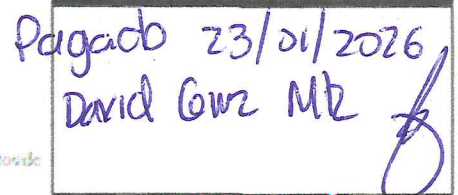 Pagado 23/01/2026
David Gwz Mtz